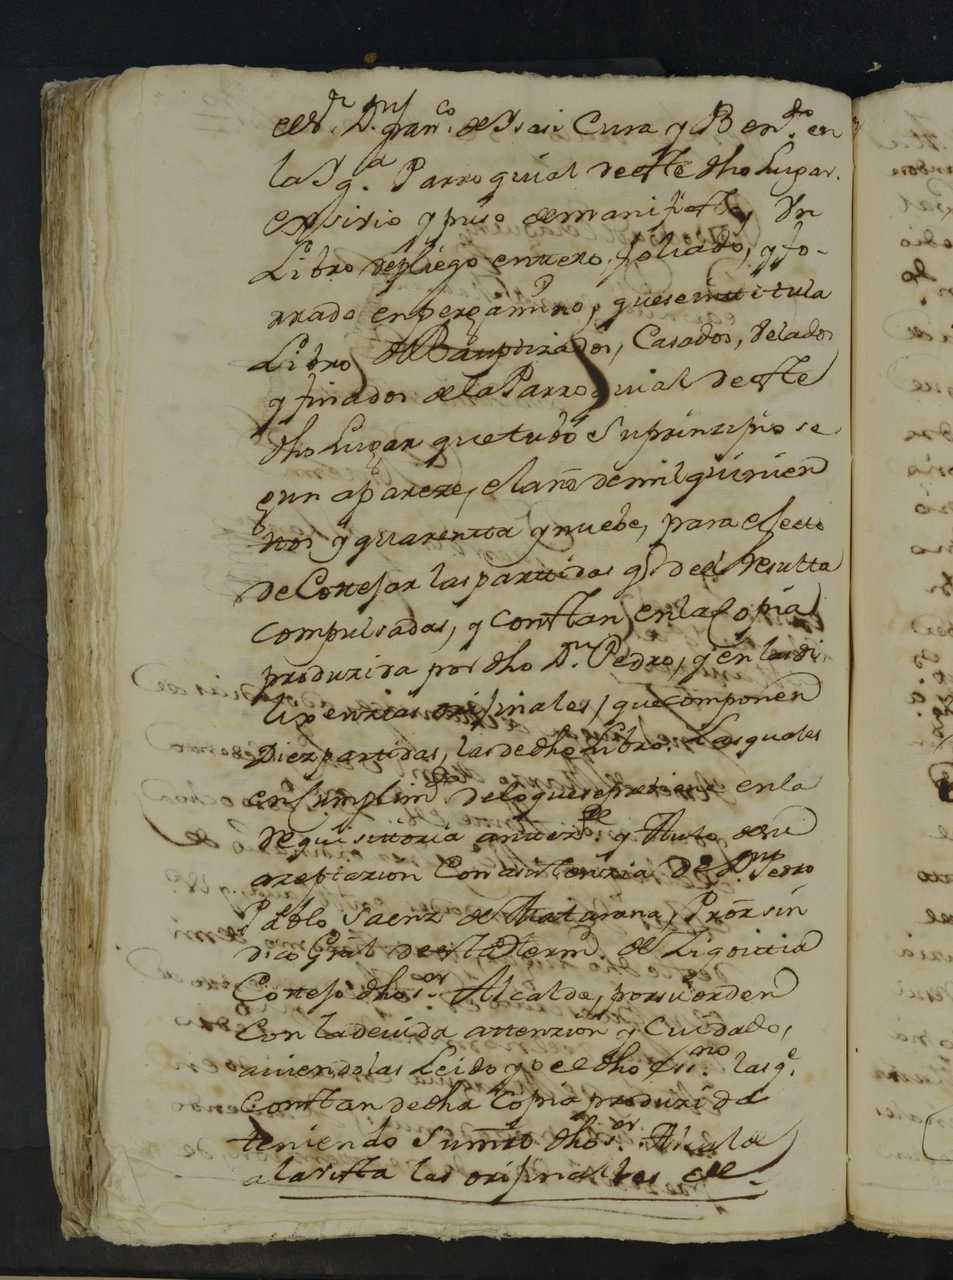 el S.r D.n Fran.co de Ysasi Cura y Ben.do en
la Yg.a Parroquial de este dho Lugar.
exsivio y puso de manifiesto, Un
Libro de pliego entero, foliado, y fo-
rrado en pergamino, que se intitula
Libro de Bauptizados, Casados, Velados
y finados de la Parroquial de este
dho Lugar que tubo su prinzipio se
gun apareze, el año de mil quinien
tos y quarenta y nuebe, para efecto
de Cotejar las partidas q.e de el Resulta
compulsadas, y constan en la Copia
produzida por dho D.n Pedro, y en las di
lixenzias orijinales, que componen
Diez partidas, las de dho Libro. Las quales
en Cumplim.to de lo que se previene en la
Requisitoria antezed.te y Auto de su
azeptazion Con asistenzia de D.n Pedro
Pablo Saenz de Matarana, Pror sin
dico Gral de esta Herm.d de Ligoitia
Cotejo dho s.or Alcalde, por su orden
Con la devida attenzion y Cuidado,
aviendolas Leido yo el dho ess.no las q.e
Constan de dha Copia produzida
teniendo Su mrd dho s.or Alcalde
a la vista las orijinales de